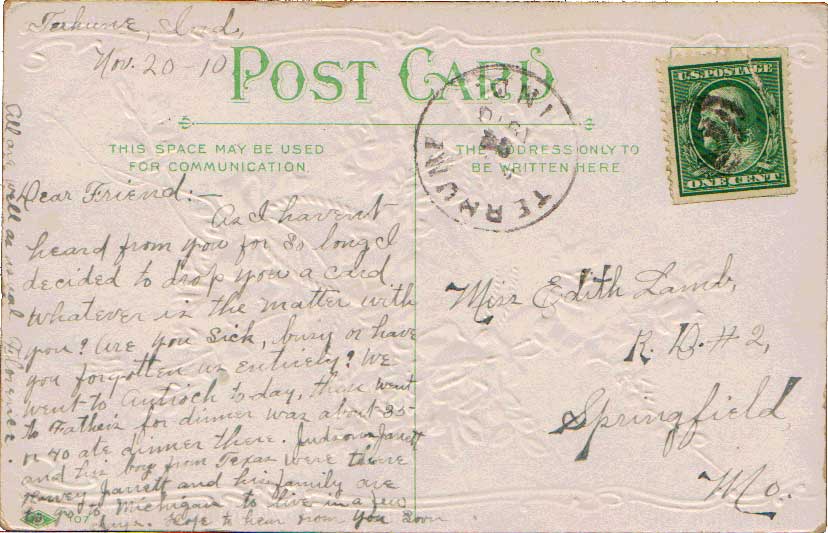 Terhune, Ind,
Nov. 20-10
POST CARD
THIS SPACE MAY BE USED
FOR COMMUNICATION
THE ADDRESS ONLY TO
BE WRITTEN HERE
IND
1910
U.S. POSTAGE
ONE CENT
Dear Friend:—
As I haven't
heard from you for so long I
decided to drop you a card.
Whatever is the matter with
you? Are you sick, busy or have
you forgotten us entirely? We
went to Antioch to day, then went
to Father's for dinner was about 35
or 40 ate dinner there. Judson Jarrett
and his boy from Texas were there
Harvey Jarrett and his family are
to go to Michigan to live in a few
days. Hope to hear from you soon
All are well as usual Florence.
Miss Edith Lamb,
R. D. # 2,
Springfield,
Mo.
107